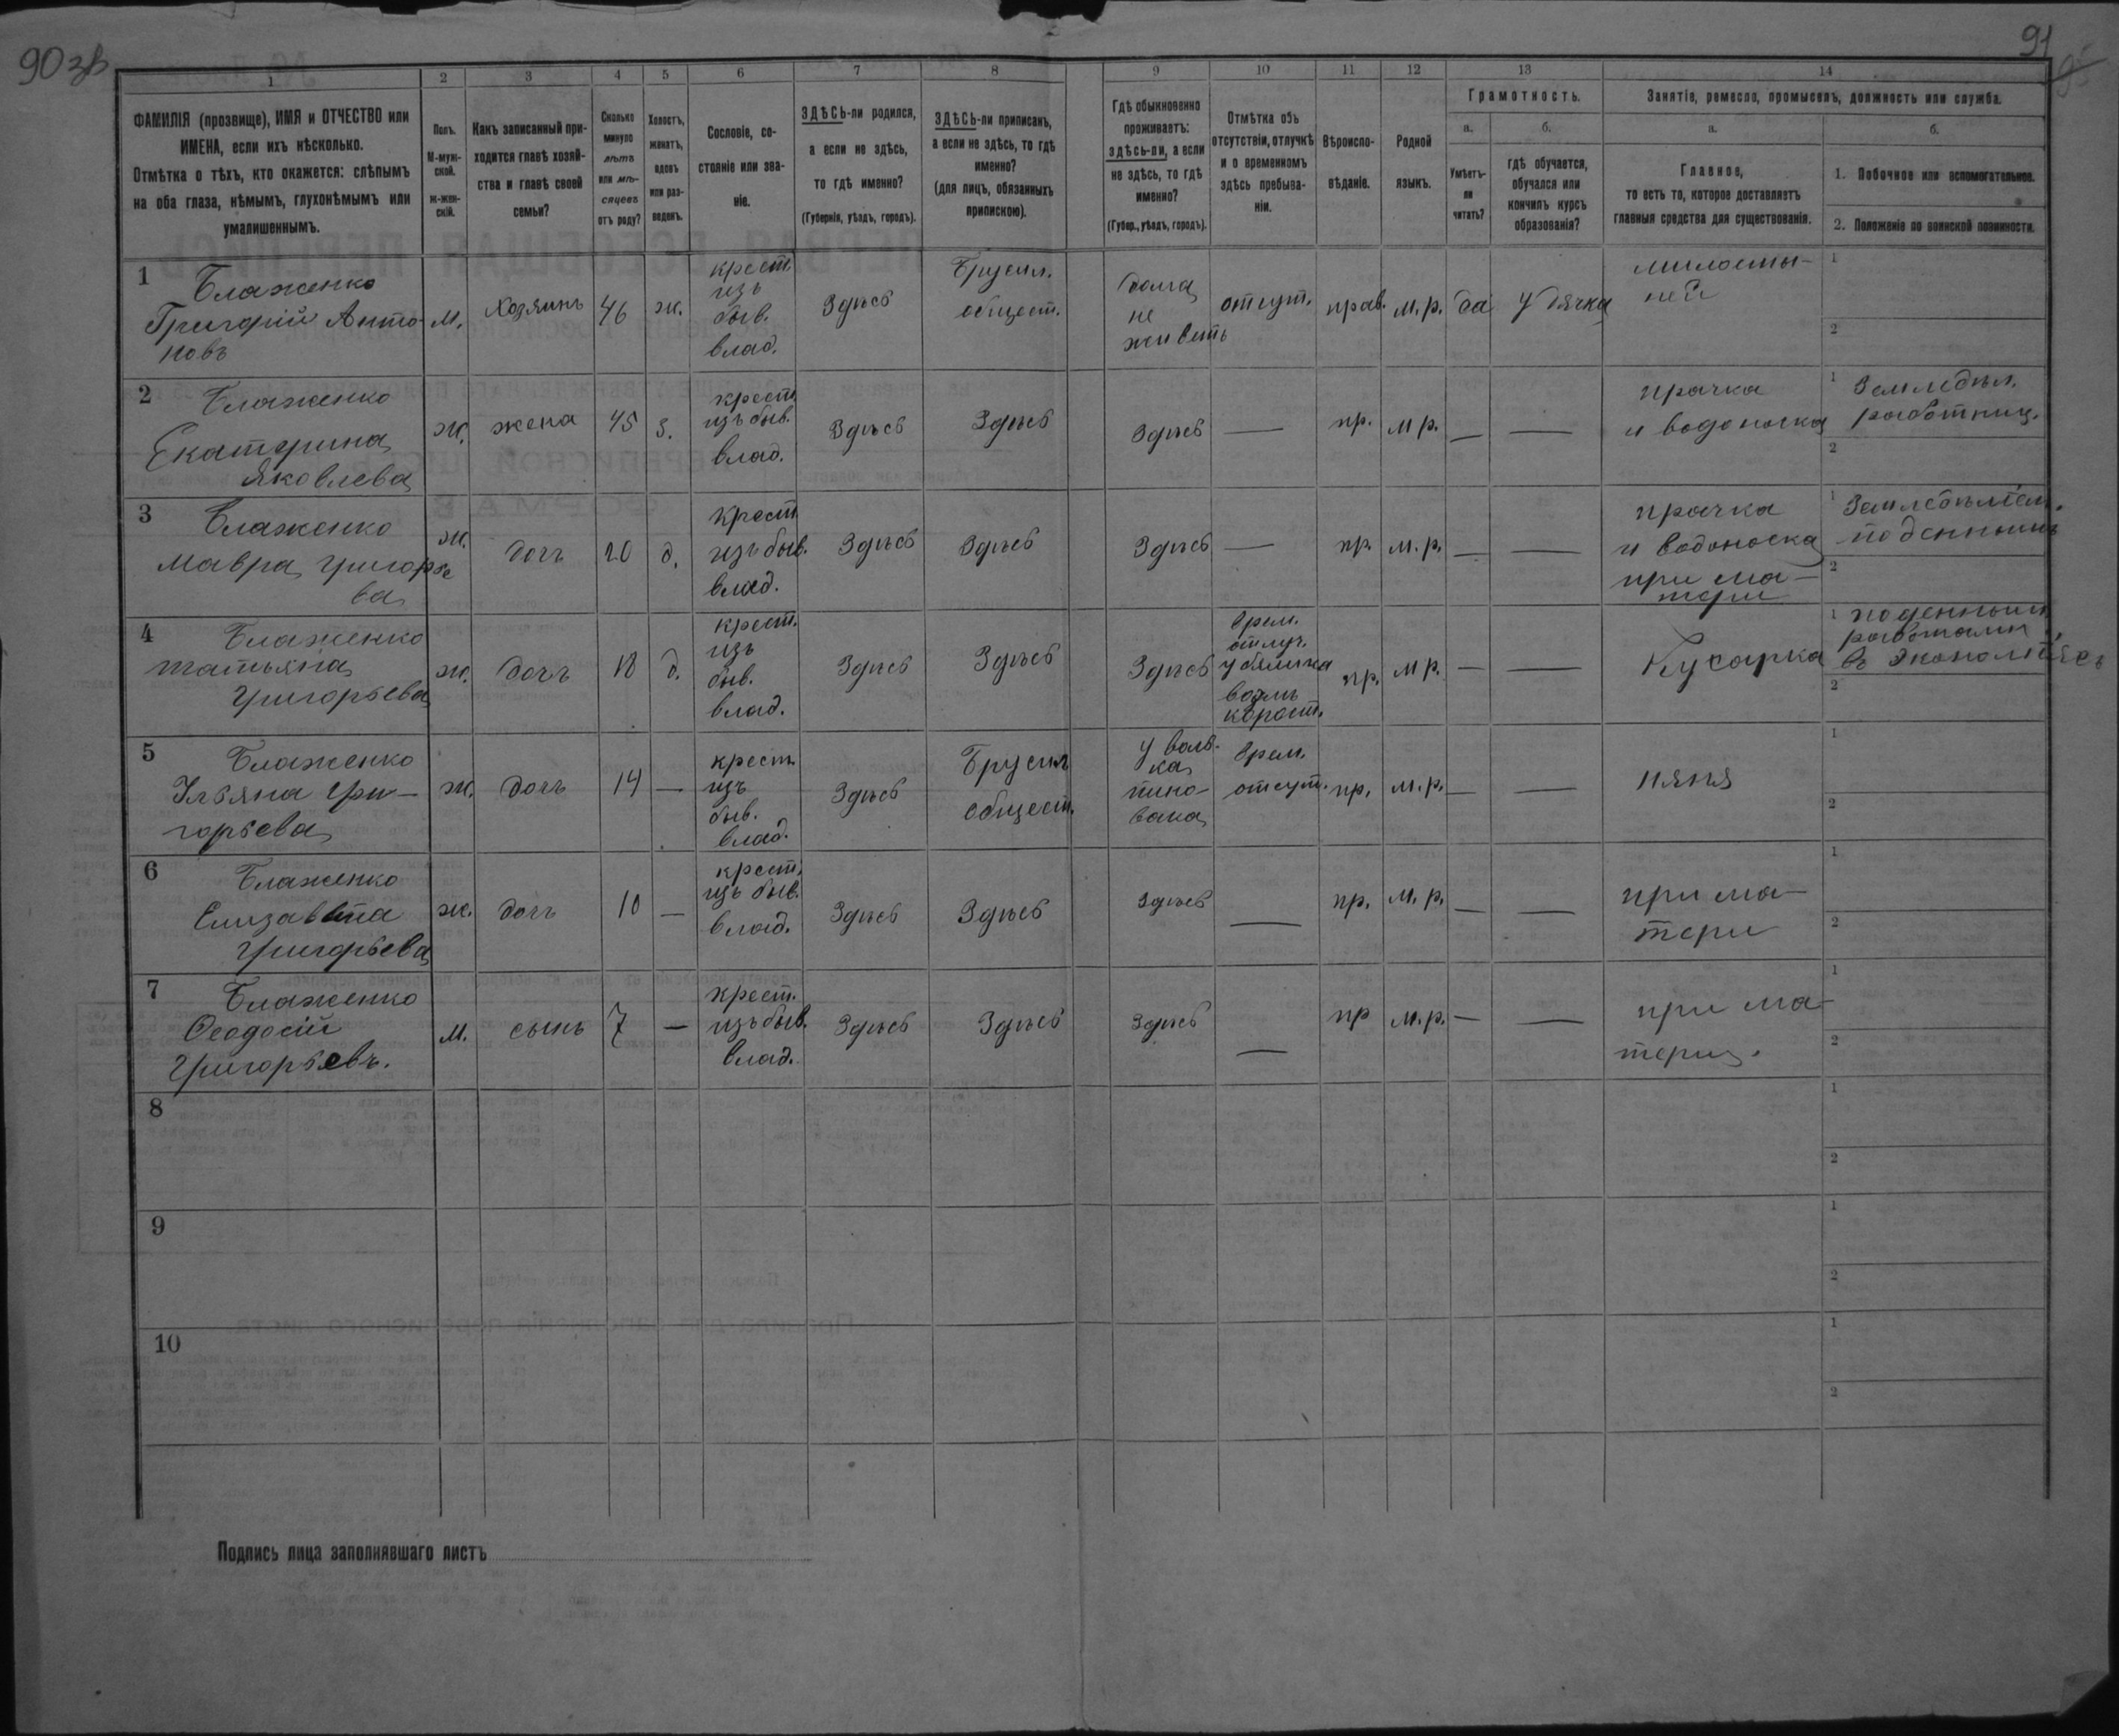 90зв
91
1
2
3
4
5
6
7
8
9
10
11
12
13
14
ФАМИЛІЯ (прозвище), ИМЯ и ОТЧЕСТВО или
ИМЕНА, если ихъ нѣсколько.
Отмѣтка о тѣхъ, кто окажется: слѣпымъ
на оба глаза, нѣмымъ, глухонѣмымъ или
умалишеннымъ.
Полъ.
М-муж-
ской.
ж-жен-
скій.
Какъ записанный при-
ходится главѣ хозяй-
ства и главѣ своей
семьи?
Сколько
минуло
лѣтъ
или мѣ-
сяцевъ
отъ роду?
Холостъ,
женатъ,
вдовъ
или раз-
веденъ.
Сословіе, со-
стояніе или зва-
ніе.
ЗДѢСЬ-ли родился,
а если не здѣсь,
то гдѣ именно?
(Губернія, уѣздъ, городъ).
ЗДѢСЬ-ли приписанъ,
а если не здѣсь, то гдѣ
именно?
(для лицъ, обязанныхъ
припискою).
Гдѣ обыкновенно
проживаетъ:
здѣсь-ли, а если
не здѣсь, то гдѣ
именно?
(Губер., уѣздъ, городъ).
Отмѣтка объ
отсутствіи, отлучкѣ
и о временномъ
здѣсь пребыва-
ніи.
Вѣроиспо-
вѣданіе.
Родной
языкъ.
Грамотность.
а.
Умѣетъ-
ли
читать?
б.
гдѣ обучается,
обучался или
кончилъ курсъ
образованія?
Занятіе, ремесло, промыселъ, должность или служба.
а.
Главное,
то есть то, которое доставляетъ
главныя средства для существованія.
б.
1. Побочное или вспомогательное.
2. Положеніе по воинской повинности.
1
Блаженко
Григорій Анто-
новъ
м.
Хозяинъ
46
ж.
крест.
изъ
быв.
влад.
Здѣсь
Брусил.
общест.
дома
не
живетъ
отсут.
прав.
м.р.
да
у дячка
милосты-
ней
1
2
2
Блаженко
Екатерина
Яковлева
ж.
жена
45
з.
крест.
изъ быв.
влад.
Здѣсь
Здѣсь
Здѣсь
—
пр.
м р.
—
—
прачка
и водоноска
1
Земледѣл.
работниц.
2
3
Блаженко
Мавра Григорье
ва
ж.
дочь
20
д.
крест.
изъ быв.
влад.
Здѣсь
Здѣсь
Здѣсь
—
пр.
м.р.
—
—
прачка
и водоноска
при ма-
тери
1
2
4
Блаженко
Татьяна
Григорьева
ж.
дочь
18
д.
крест.
изъ
быв.
влад.
Здѣсь
Здѣсь
Здѣсь
врем.
отлуч.
пр.
м р.
—
—
Кухарка
1
2
5
Блаженко
Ульяна Гри-
горьева
ж.
дочь
14
—
крест.
изъ
быв.
влад.
Здѣсь
Брусил
общест.
врем.
отсут.
пр.
м.р.
—
—
няня
1
2
6
Блаженко
Елизавета
Григорьева
ж.
дочь
10
—
крест.
изъ быв.
влад.
Здѣсь
Здѣсь
Здѣсь
—
пр.
м.р.
—
—
при ма-
тери
1
2
7
Блаженко
Ѳеодосій
Григорьевъ.
м.
сынъ
7
—
крест.
изъ быв.
влад.
Здѣсь
Здѣсь
Здѣсь
—
пр
м.р.
—
—
при ма-
тери.
1
2
8
1
2
9
1
2
10
1
2
Подпись лица заполнявшаго листъ